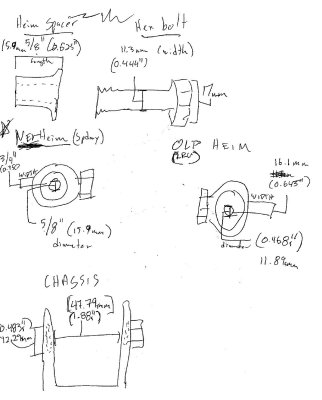 Heim Spacer
Hex bolt
15.9mm 5/8" (0.625")
length
11.3mm (width)
(0.444")
7mm
NEW Heim (Spday)
3/4"
WIDTH
5/8" (15.9mm)
diameter
OLD HEIM
16.1mm
(0.643")
WIDTH
diameter (0.468")
11.89mm
CHASSIS
[47.79mm]
(1.88")
0.483"
12.29mm